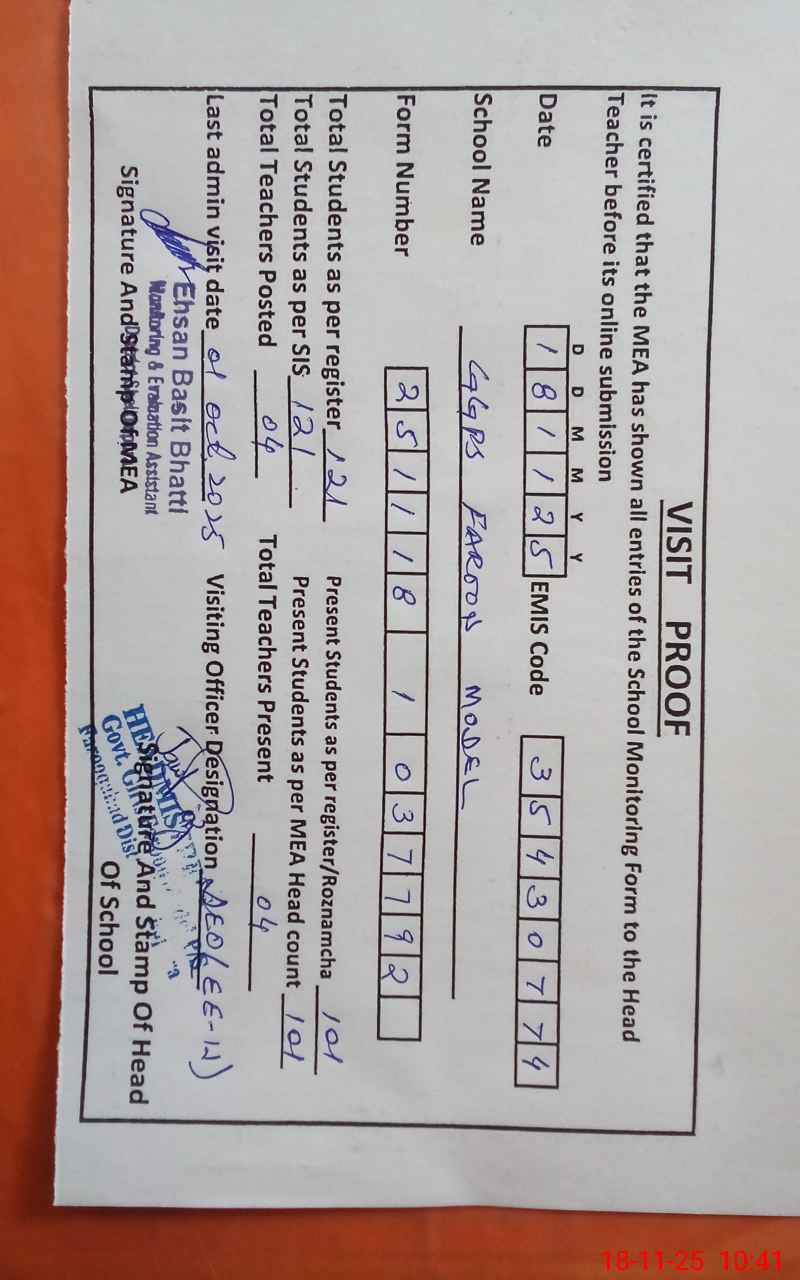 VISIT PROOF
It is certified that the MEA has shown all entries of the School Monitoring Form to the Head
Teacher before its online submission
D D M M Y Y
Date 1 8 1 1 2 5 EMIS Code 3 5 4 3 0 7 7 4
School Name GGPS FAROOQ MODEL
Form Number 2 5 1 1 1 8 1 0 3 7 7 9 2
Total Students as per register 121 Present Students as per register/Roznamcha 101
Total Students as per SIS 121 Present Students as per MEA Head count 101
Total Teachers Posted 04 Total Teachers Present 04
Last admin visit date 01 Oct 2025 Visiting Officer Designation AEO(EE-W)
Ehsan Basit Bhatti
Monitoring & Evaluation Assistant
Signature And Stamp Of MEA
HEADMISTRESS
Govt. Girls
Farooqabad Dist
Signature And Stamp Of Head
Of School
18-11-25 10:41